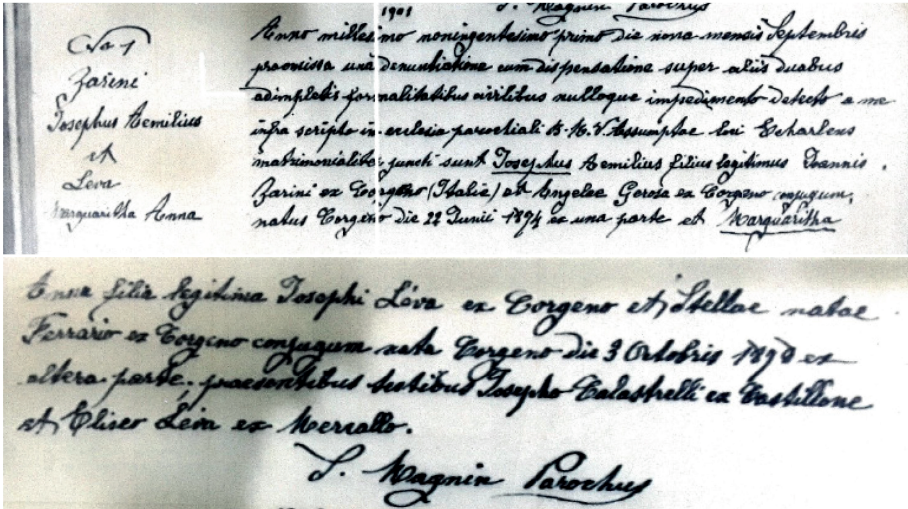 1901
S. Magnin Parochus
No 1
Zarini
Josephus Aemilius
et
Leva
Marguaritha Anna
Anno millesimo noningentesimo primo die nona mensis Septembris
praemissa una denuntiatione cum dispensatione super aliis duabus
adimpletis formalitatibus civilibus nulloque impedimento detecto a me
infra scripto in ecclesia parochiali B. M. V. Assumptae loci Echarlens
matrimonialiter juncti sunt Josephus Aemilius filius legitimus Joannis
Zarini ex Corgeno (Italie) et Angelae Gorosa ex Corgeno conjugum,
natus Corgeno die 22 Junii 1874 ex una parte et Marguaritha
Anna filia legitima Josephi Léva ex Corgeno et Stellae natae
Ferrario ex Corgeno conjugum nata Corgeno die 3 Octobris ex
altera parte; praesentibus testibus Josepho Balastrelli ex Castillone
et Eliseo Léva ex Mercallo.
S. Magnin Parochus